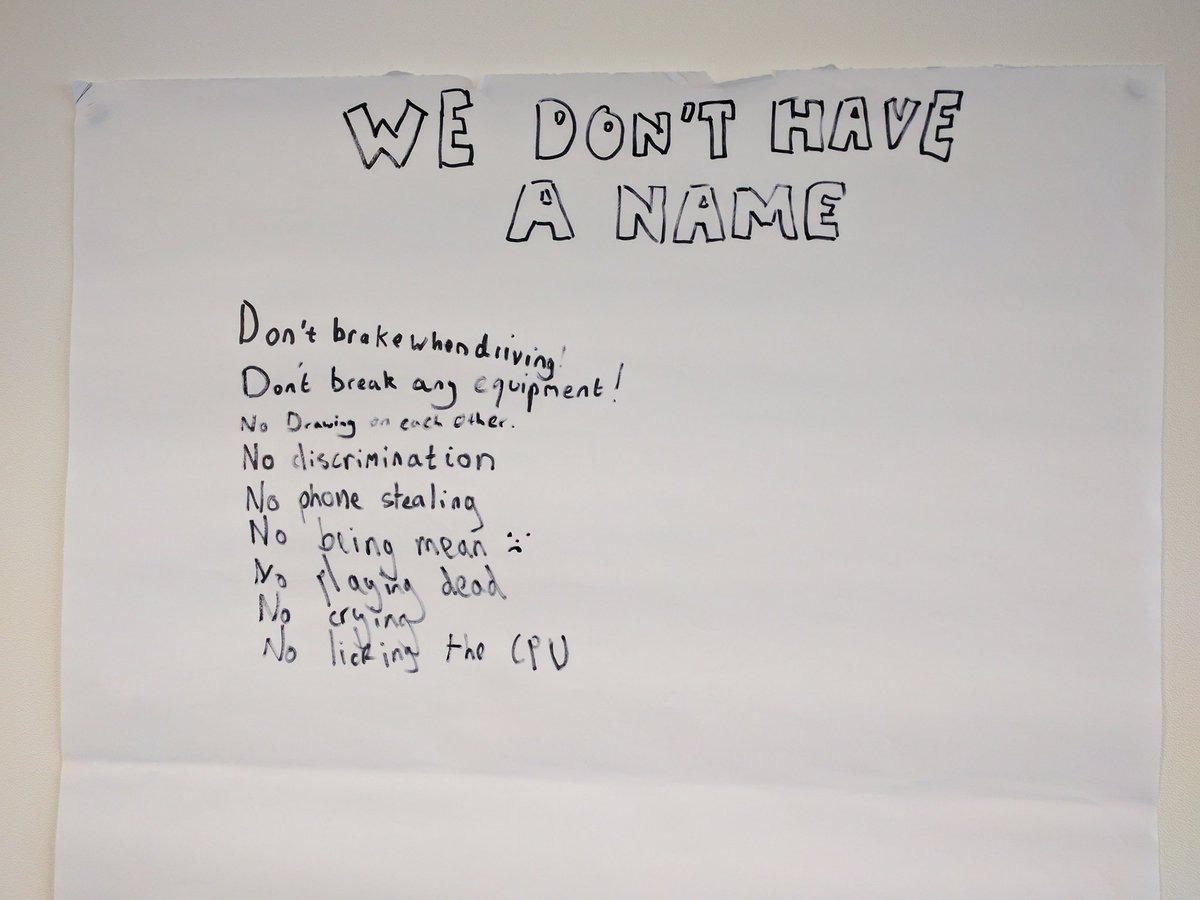 WE DON'T HAVE
A NAME
Don't brake when driving!
Don't break any equipment!
No Drawing on each other.
No discrimination
No phone stealing
No being mean :(
No playing dead
No crying
No licking the CPU